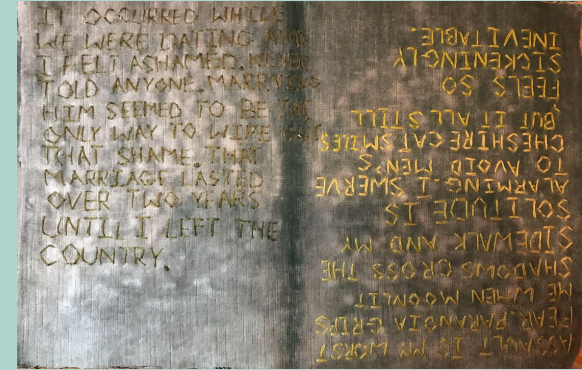 IT OCCURRED WHILE
WE WERE DATING. AND
I FELT ASHAMED. NEVER
TOLD ANYONE. MARRYING
HIM SEEMED TO BE THE
ONLY WAY TO WIPE OUT
THAT SHAME. THAT
MARRIAGE LASTED
OVER TWO YEARS
UNTIL I LEFT THE
COUNTRY.
ASSAULT IS MY WORST
FEAR. PARANOIA GRIPS
ME WHEN MOONLIT
SHADOWS CROSS THE
SIDEWALK AND MY
SOLITUDE IS
ALARMING. I SWERVE
TO AVOID MEN'S
CHESHIRE CAT SMILES
BUT IT ALL STILL
FEELS SO
SICKENINGLY
INEVITABLE.